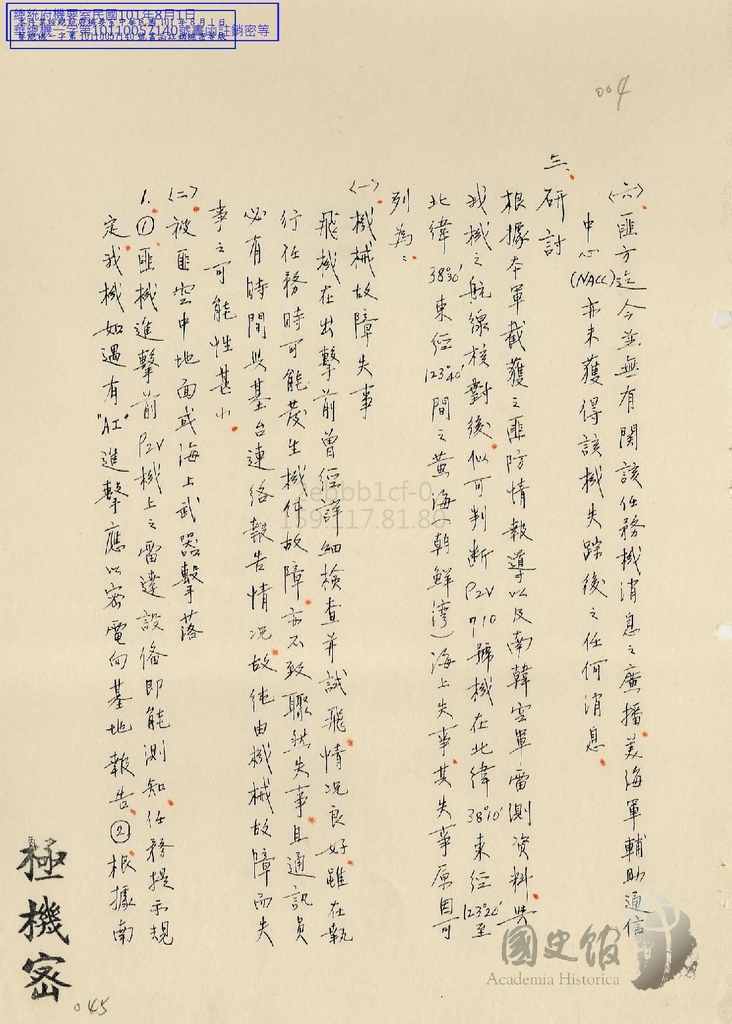 總統府機要室民國101年8月1日
華總機一字第10110057140號書函註銷機密等
本件業經總統府機要室中華民國101年8月1日
華總機一字第10110057140號書函註銷機密等級
004
(六)匪方迄今並無有關該任務機消息之廣播美海軍輔助通信
中心(NACC)亦未獲得該機失踪後之任何消息
三、研討
根據本軍截獲之匪防情報導以及南韓空軍雷測資料與
我機之航線核對後似可判斷P2V 7101號機在北緯38°10'東經123°26'至
北緯38°30'東經123°40'間之黃海(朝鮮灣)海上失事其失事原因可
列為:
(一)機械故障失事
飛機在出擊前曾經詳細檢查并試飛情況良好雖在執
行任務時可能發生機件故障亦不致驟然失事且通訊員
必有時間與基台連絡報告情況故純由機械故障而失
事之可能性甚小
(二)被匪空中地面或海上武器擊落
1.①匪機進擊前P2V機上之雷達設備即能測知任務提示規
定我機如遇有"AI"進擊應以密電向基地報告②根據南
極機密
045
國史館
Academia Historica